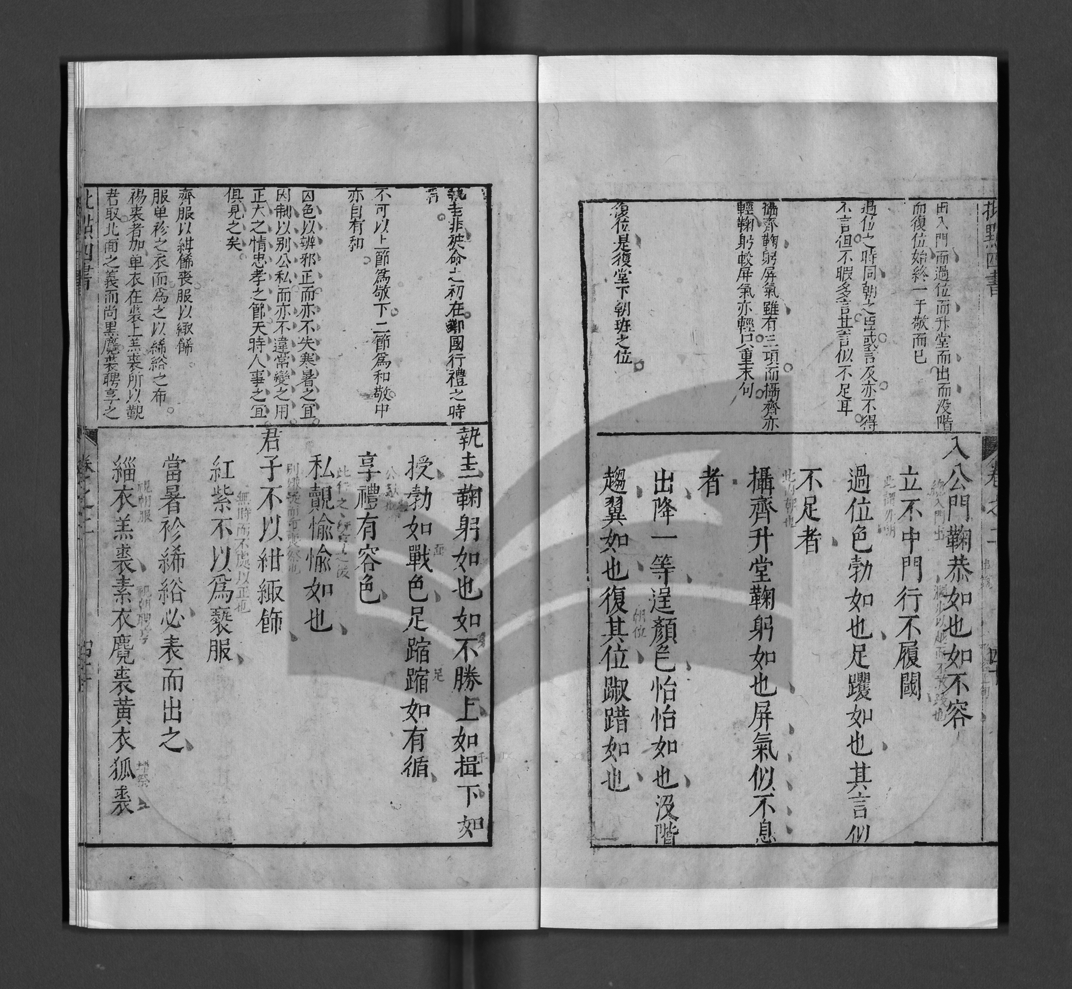 由入門而過位而升堂而出而没階
而復位始終一于敬而已
過位之時同朝之臣或言及亦不得
不言但不暇多言其言似不足耳
攝齊鞠躬屏氣雖有三項而攝齊亦
輕鞠躬較屏氣亦輕只重末句
復位是復堂下朝班之位
入公門鞠恭如也如不容
立不中門行不履閾
過位色勃如也足躩如也其言似
不足者
攝齊升堂鞠躬如也屏氣似不息
者
出降一等逞顏色怡怡如也没階
趨翼如也復其位踧踖如也
執圭非被命之初在鄰國行禮之時
不可以上節爲敬下二節爲和敬中
亦自有和
因色以辨邪正而亦不失寒暑之宜
因制以別公私而亦不違常變之用
正大之情忠孝之節天時人事之宜
俱見之矣
齊服以紺餙喪服以緅餙
服单袗之衣而爲之以絺綌之布
裼裘者加单衣在裘上羔裘所以覲
君取北面之義而尚黑麑裘聘享之
執圭鞠躬如也如不勝上如揖下如
授勃如戰色足蹜蹜如有循
享禮有容色
私覿愉愉如也
君子不以紺緅飾
紅紫不以爲褻服
當暑袗絺綌必表而出之
緇衣羔裘素衣麑裘黄衣狐裘